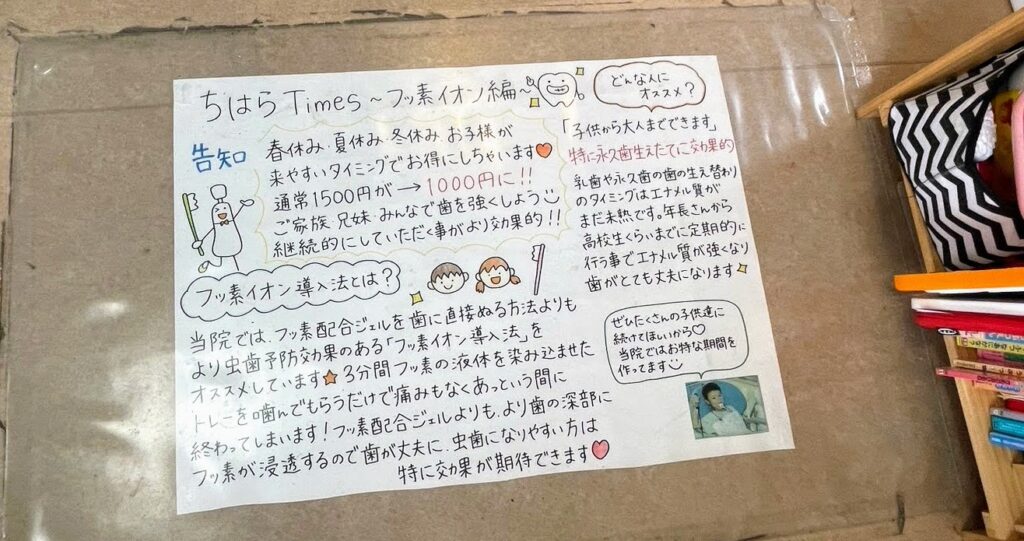 ちはらTimes ~フッ素イオン編~
告知
春休み・夏休み・冬休み お子様が
来やすいタイミングでお得にしちゃいます♥
通常1500円が→1000円に!!
ご家族・兄妹・みんなで歯を強くしよう
継続的にしていただく事がより効果的!!
フッ素イオン導入法とは?
当院では、フッ素配合ジェルを歯に直接ぬる方法よりも
より虫歯予防効果のある「フッ素イオン導入法」を
オススメしています★3分間フッ素の液体を染み込ませた
トレーを噛んでもらうだけで痛みもなくあっという間に
終わってしまいます!フッ素配合ジェルよりも、より歯の深部に
フッ素が浸透するので歯が丈夫に、虫歯になりやすい方は
特に効果が期待できます♥
どんな人に
オススメ?
「子供から大人までできます」
特に永久歯生えたてに効果的
乳歯や永久歯の歯の生え替わり
のタイミングはエナメル質が
まだ未熟です。年長さんから
高校生くらいまでに定期的に
行う事でエナメル質が強くなり
歯がとても丈夫になります
ぜひたくさんの子供達に
続けてほしいから♡
当院ではお得な期間を
作ってます